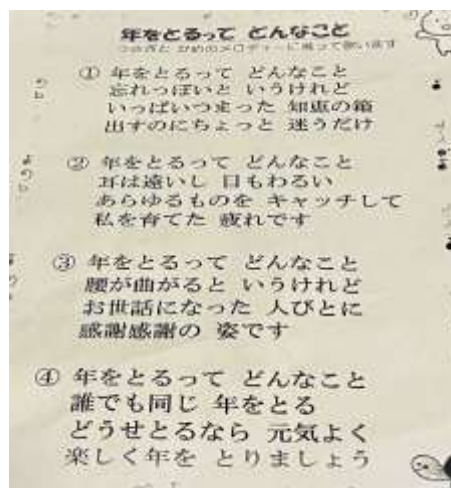 年をとるって どんなこと
うさぎと かめのメロディーに乗って歌います
① 年をとるって どんなこと
忘れっぽいと いうけれど
いっぱいつまった 知恵の箱
出すのにちょっと 迷うだけ
② 年をとるって どんなこと
耳は遠いし 目もわるい
あらゆるものを キャッチして
私を育てた 疲れです
③ 年をとるって どんなこと
腰が曲がると いうけれど
お世話になった 人びとに
感謝感謝の 姿です
④ 年をとるって どんなこと
誰でも同じ 年をとる
どうせとるなら 元気よく
楽しく年を とりましょう